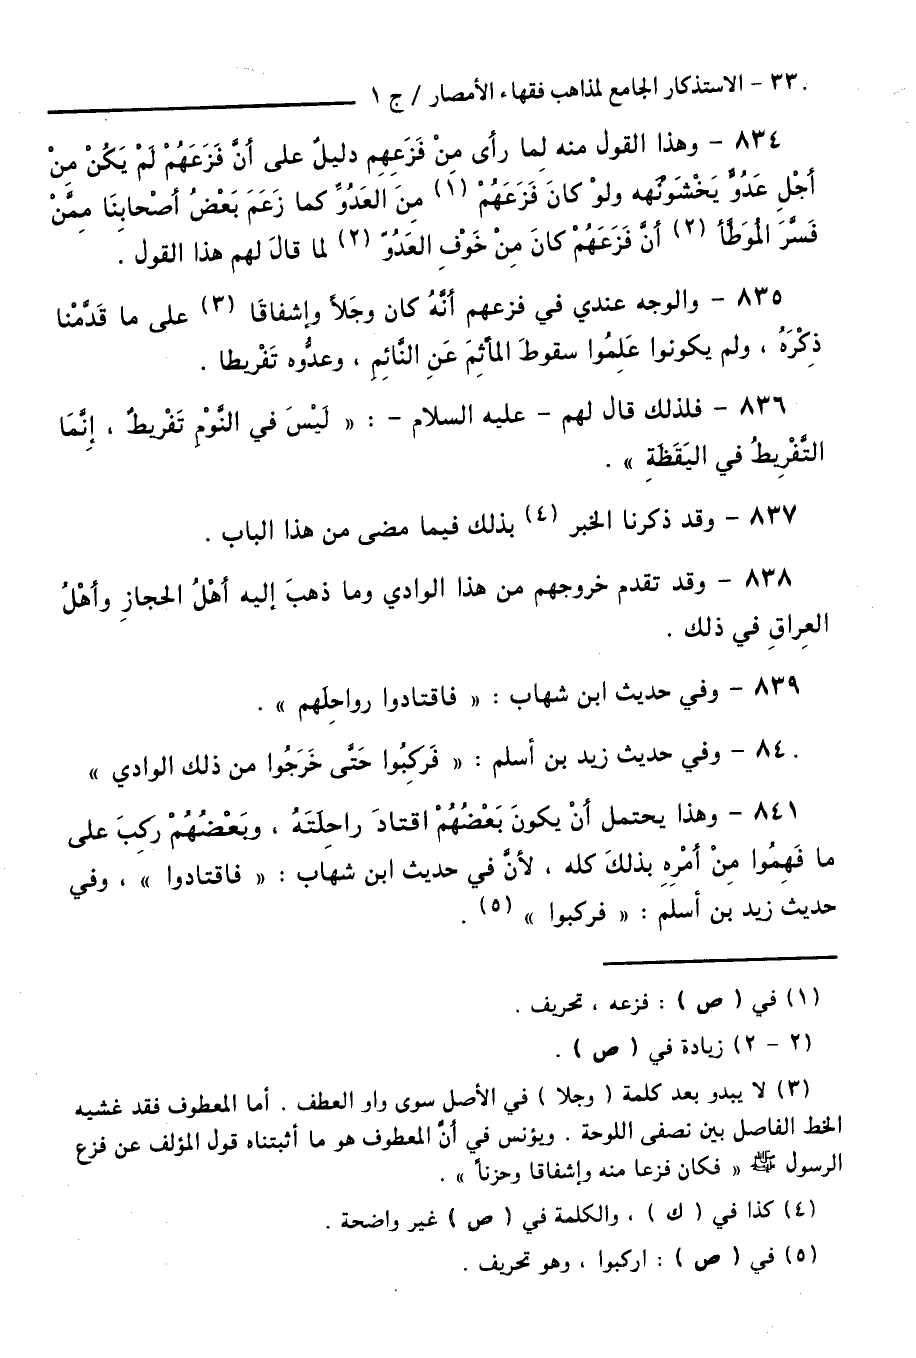 ٣٣٠ - الاستذكار الجامع لمذاهب فقهاء الأمصار / ج ١
٨٣٤ - وهذا القول منه لِما رأى مِنْ فَزَعِهِم دليلٌ على أنَّ فَزَعَهُمْ لَمْ يَكُنْ مِنْ
أجْلِ عَدُوٍّ يَخْشَونَهُ ولوْ كانَ فَزَعَهُمْ (١) مِنَ العَدُوِّ كما زَعَمَ بَعْضُ أصْحابِنَا مِمَّنْ
فَسَّرَ المُوَطَّأ (٢) أنَّ فَزَعَهُمْ كانَ مِنْ خَوْفِ العَدُوِّ (٢) لما قالَ لهم هذا القول .
٨٣٥ - والوجه عندي في فزعهم أنَّهُ كان وجَلاً وإشفاقًا (٣) على ما قَدَّمْنا
ذِكْرَهُ ، ولم يكونوا عَلِمُوا سقوطَ المأثمَ عَنِ النَّائِمِ ، وعدُّوه تَفْرِيطا .
٨٣٦ - فلذلك قال لهم - عليه السلام - : « لَيْسَ في النَّوْمِ تَفْرِيطٌ ، إنَّمَا
التَّفْرِيطُ في اليَقَظَةِ » .
٨٣٧ - وقد ذكرنا الخبر (٤) بذلك فيما مضى من هذا الباب .
٨٣٨ - وقد تقدم خروجهم من هذا الوادي وما ذهبَ إليه أهْلُ الحجازِ وأهْلُ
العِراقِ في ذلك .
٨٣٩ - وفي حديث ابن شهاب : « فاقتادوا رواحِلَهم » .
٨٤٠ - وفي حديث زيد بن أسلم : « فَركِبُوا حَتَّى خَرَجُوا من ذلك الوادي »
٨٤١ - وهذا يحتمل أنْ يكونَ بَعْضُهُمْ اقتادَ راحِلَتَهُ ، وبَعْضُهُمْ ركِبَ على
ما فَهِمُوا مِنْ أمْرِهِ بذلكَ كله ، لأنَّ في حديث ابن شهاب : « فاقتادوا » ، وفي
حديث زيد بن أسلم : « فركبوا » (٥) .
(١) في ( ص ) : فزعه ، تحريف .
(٢ - ٢) زيادة في ( ص ) .
(٣) لا يبدو بعد كلمة ( وجلا ) في الأصل سوى واو العطف . أما المعطوف فقد غشيه
الخط الفاصل بين نصفى اللوحة . ويؤنس في أنَّ المعطوف هو ما أثبتناه قول المؤلف عن فزع
الرسول ﷺ « فكان فزعا منه وإشفاقا وحزناً » .
(٤) كذا في ( ك ) ، والكلمة في ( ص ) غير واضحة .
(٥) في ( ص ) : اركبوا ، وهو تحريف .